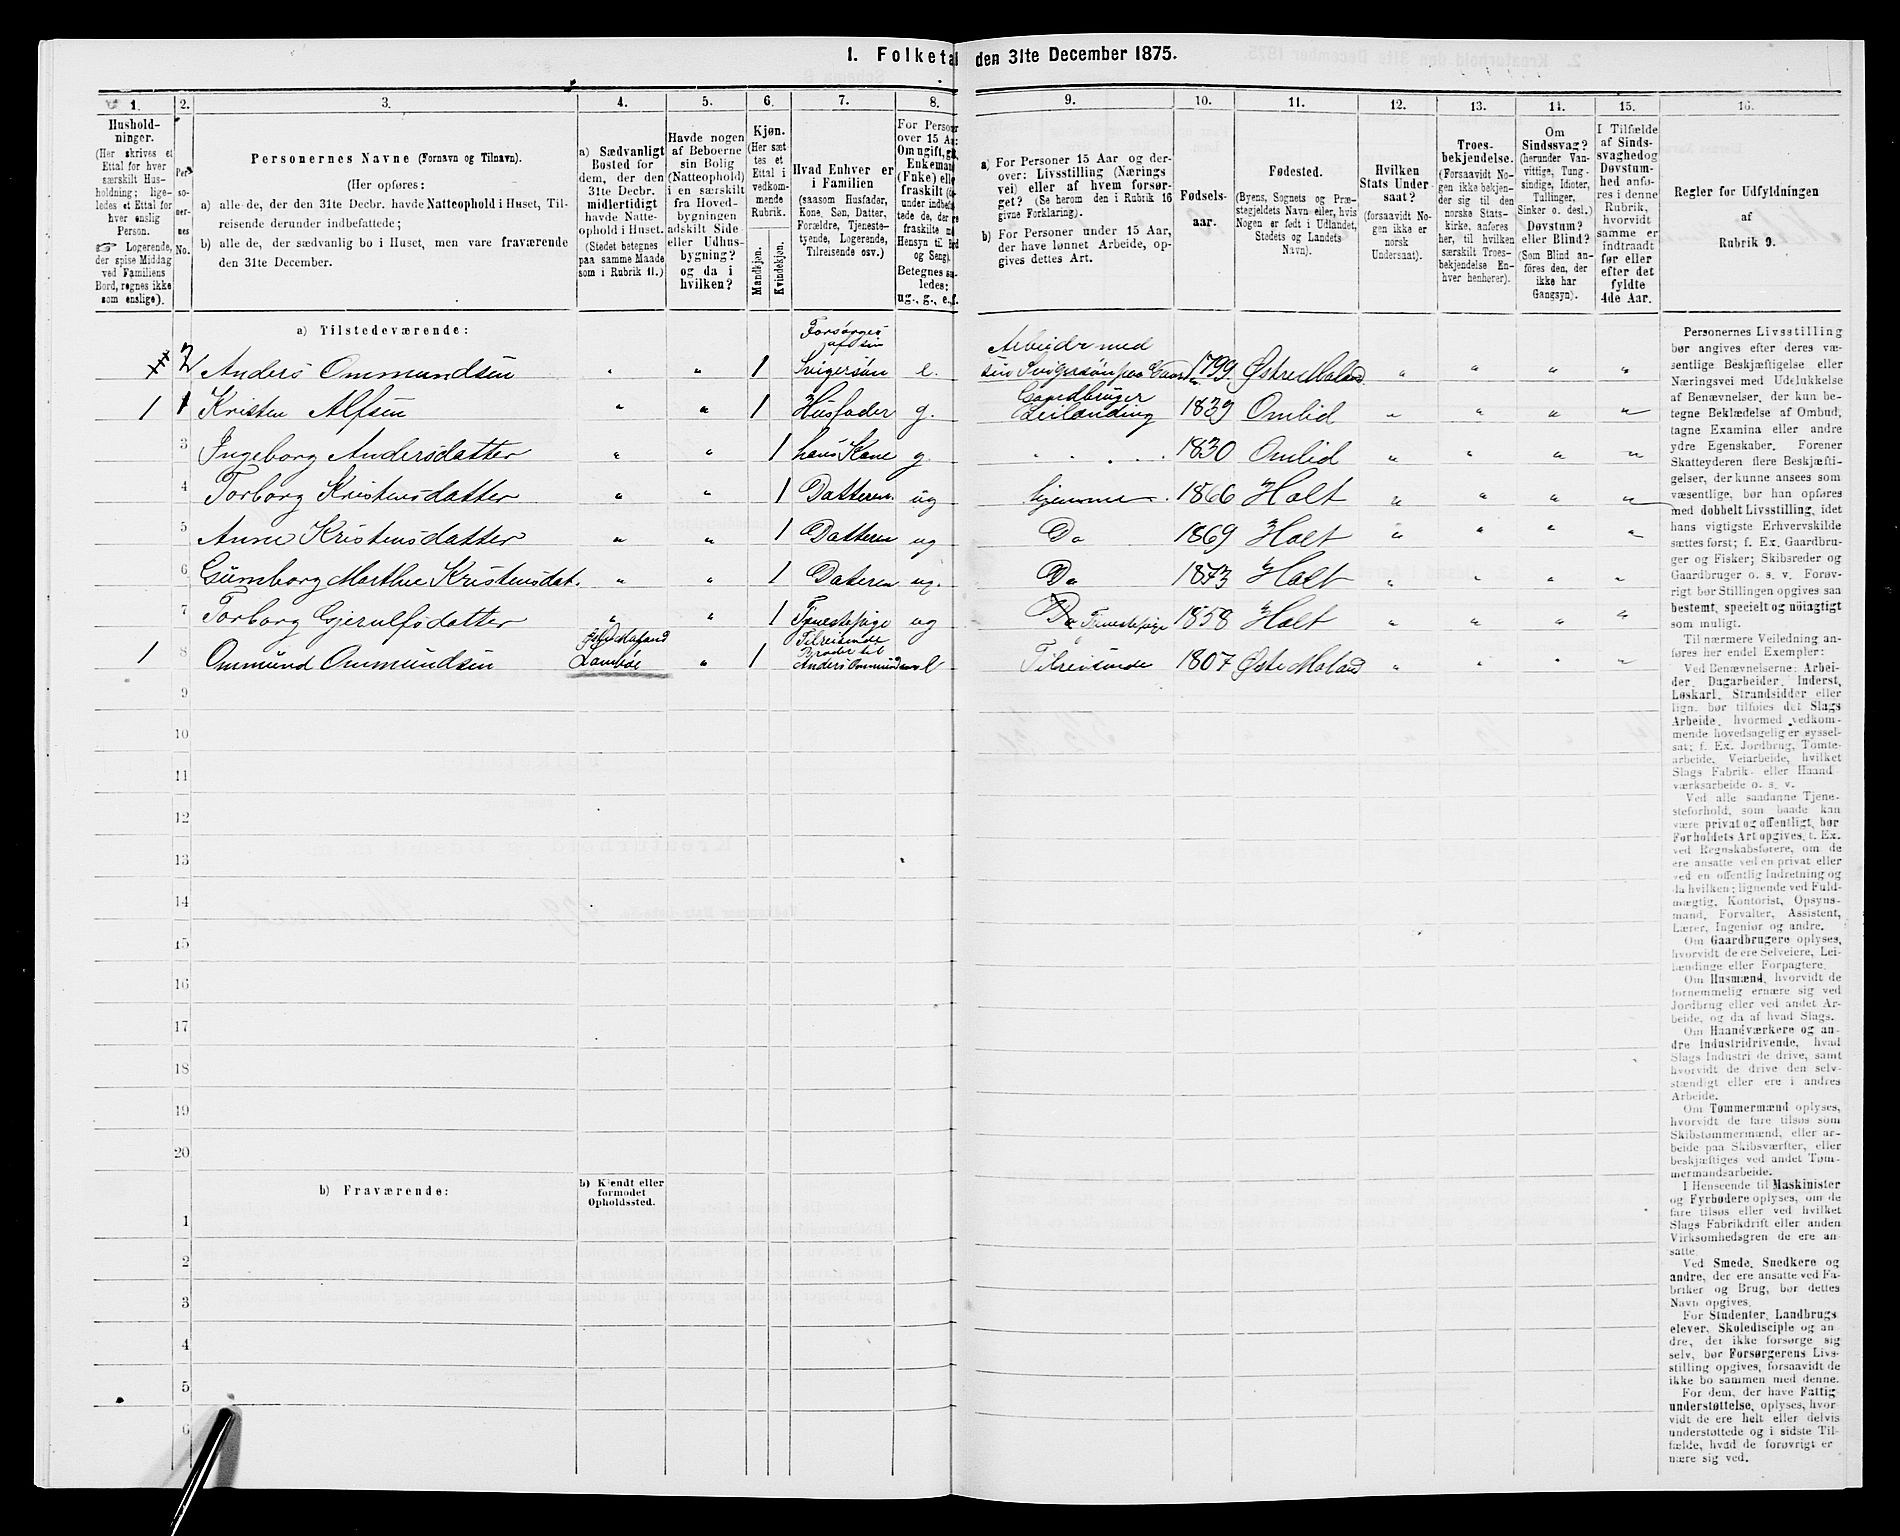 1. Folketal den 31te December 1875.
1. 2. 3. 4. 5. 6. 7. 8. 9. 10. 11. 12. 13. 14. 15. 16.
Hushold-
ninger.
(Her skrives et
Ettal for hver
særskilt Hus-
holdning; lige-
ledes et Ettal for
hver enslig
Person.
☞ Logerende,
der spise Middag
ved Familiens
Bord, regnes ikke
som enslige).
Per-
so-
ner-
nes
No.
Personernes Navne (Fornavn og Tilnavn).
(Her opføres:
a) alle de, der den 31te Decbr. havde Natteophold i Huset, Til-
reisende derunder indbefattede;
b) alle de, der sædvanlig bo i Huset, men vare fraværende
den 31te December.
a) Sædvanligt
Bosted for
dem, der den
31te Decbr.
midlertidigt
havde Natte-
ophold i Huset.
(Stedet betegnes
paa samme Maade
som i Rubrik 11.)
Havde nogen
af Beboerne
sin Bolig
(Natteophold)
i en særskilt
fra Hoved-
bygningen
adskilt Side
eller Udhus-
bygning?
og da i
hvilken?
Kjøn.
(Her sæt-
tes et
Ettal i
vedkom-
mende
Rubrik.
Mandkjøn.
Kvindekjøn.
Hvad Enhver er
i Familien
(saasom Husfader,
Kone, Søn, Datter,
Forældre, Tjeneste-
tyende, Logerende,
Tilreisende osv.)
For Person
over 15 Aa
Om ugift, gi
Enkemand
(Enke) elle
fraskilt
Betegnes sa-
ledes:
ug., g., e., f.
a) For Personer 15 Aar og der-
over: Livsstilling (Nærings
vei) eller af hvem forsør-
get? (Se herom den i Rubrik 16
givne Forklaring).
b) For Personer under 15 Aar,
der have lønnet Arbeide, op-
gives dettes Art.
Fødsels-
aar.
Fødested.
(Byens, Sognets og Præ-
stegjeldets Navn eller, hvis
Nogen er født i Udlandet,
Stedets og Landets
Navn).
Hvilken
Stats Under-
saat?
(forsaavidt No-
gen ikke er
norsk
Undersaat).
Troes-
bekjendelse.
(Forsaavidt No-
gen ikke bekjen-
der sig til den
norske Stats-
kirke, anføres
her, til hvilken
særskilt Troes-
bekjendelse En-
hver henhører).
Om
Sindssvag?
(herunder Van-
vittige, Tung-
sindige, Idioter,
Tullinger,
Sinker o. desl.)
Døvstum?
eller Blind?
(Som Blind an-
føres den, der
ikke har
Gangsyn).
I Tilfælde
af Sinds-
svaghed og
Døvstum-
hed anfø-
res i denne
Rubrik,
hvorvidt
samme er
indtraadt
før eller
efter det
fyldte
4de Aar.
Regler for Udfyldningen
af
Rubrik 9.
a) Tilstedeværende:
2 Anders Ommundsen " " 1 Forsørges af sin Svigersøn e. Arbeider med sin Svigersøn paa Gaard 1799. Østre Moland " " " "
1 1 Kristen Alfsen " " 1 Husfader g. Gaardbruger Leilænding 1839 Omlid " " " "
3 Ingeborg Andersdatter " " 1 hans Kone g. " 1830 Omlid " " " "
4 Torborg Kristensdatter " " 1 Datteren ug hjemme 1866 Holt " " " "
5 Anne Kristensdatter " " 1 Datteren ug Do 1869 Holt " " " "
6 Gunborg Marthe Kristensdat. " " 1 Dateren ug. Do 1873 Holt " " " "
7 Torborg Gjerulfsdatter " " 1 Tjenestepige ug Do Tjenestepige 1858 Holt " " " "
1 8 Ommund Ommundsen Øste Moland " 1 Tilreisende Broder til Anders Ommundsen e Tilreisende 1807 Øste Moland " " " "
9
10
11
12
13
14
15
16
17
18
19
20
b) Fraværende:
b) Kjendt eller
formodet
Opholdssted.
1
2
3
4
5
6
Personernes Livsstilling
bør angives efter deres væ-
sentlige Beskjæftigelse eller
Næringsvei med Udelukkelse
af Benævnelser, der kun be-
tegne Beklædelse af Ombud,
tagne Examina eller andre
ydre Egenskaber. Forener
Skatteyderen flere Beskjæfti-
gelser, der kunne ansees som
væsentlige, bør han opføres
med dobbelt Livsstilling, idet
hans vigtigste Erhvervskilde
sættes først; f. Ex. Gaardbru-
ger og Fisker; Skibsreder og
Gaardbruger o. s. v. Forøv-
rigt bør Stillingen opgives saa
bestemt, specielt og nöiagtigt
som muligt.
Til nærmere Veiledning an-
føres her endel Exempler:
Ved Benævnelserne: Arbei-
der, Dagarbeider, Inderst,
Løskarl, Strandsidder eller
lign. bør tilføies det Slags
Arbeide, hvormed vedkom-
mende hovedsagelig er syssel-
sat; f. Ex. Jordbrug, Tomte-
arbeide, Veiarbeide, hvilket
Slags Fabrik- eller Haand
værksarbeide o. s. v.
Ved alle saadanne Tjene-
steforhold, som baade kan
være privat og offentligt, bør
Forholdets Art opgives, t. Ex.
ved Regnskabsførere, om de
ere ansatte ved en privat eller
ved en offentlig Indretning og
da hvilken; lignende ved Fuld-
mægtig, Kontorist, Opsyns-
mand, Forvalter, Assistent,
Lærer, Ingeniør og andre.
Om Gaardbrugere oplyses,
hvorvidt de ere Selveiere, Lei-
lændinge eller Forpagtere.
Om Husmænd, hvorvidt de
fornemmelig ernære sig ved
Jordbrug eller ved andet Ar-
beide, og da af hvad Slags.
Om Haandværkere og an-
dre Industridrivende, hvad
Slags Industri de drive, samt
hvorvidt de drive den selv-
stændigt eller ere i andres
Arbeide.
Om Tømmermænd oplyses,
hvorvidt de fare tilsøs som
Skibstømmermænd, eller ar-
beide paa Skibsværfter, eller
beskjæftiges ved andet Tøm-
mermandsarbeide.
I Henseende til Maskinister
og Fyrbødere oplyses, om de
fare tilsøs eller ved hvilket
Slags Fabrikdrift eller anden
Virksomhedsgren de ere an-
satte.
Ved Smede, Snedkere og
andre, der ere ansatte ved Fa-
briker og Brug, bør dettes
Navn opgives.
For Studenter, Landbrugs
elever, Skoledisciple og an-
dre, der ikke forsørge sig
selv, bør Forsørgerens Livs-
stilling opgives, forsaavidt de
ikke bo sammen med denne.
For dem, der have Fattig
understøttelse, oplyses, hvor-
vidt de ere helt eller delvis
understøttede og i sidste Til-
fælde, hvad de forøvrigt er
nære sig ved.